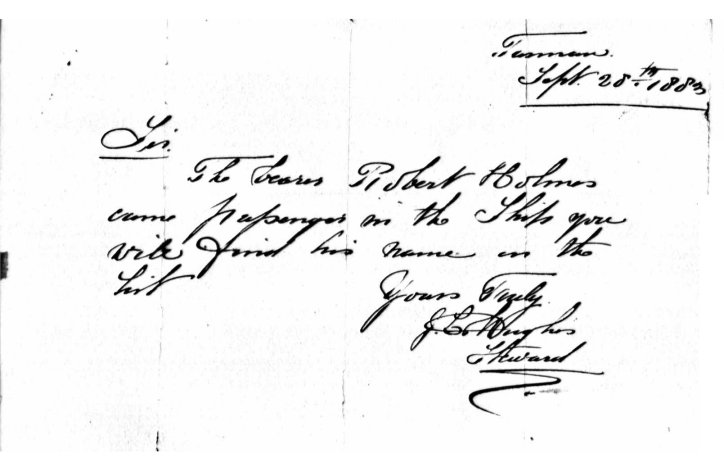 Tasman.
Sept. 28th 1883
Sir.
The bearer Robert Holmes
came passenger in the Ship you
will find his name in the
list
Yours Truly.
J. C. Hughes
Steward